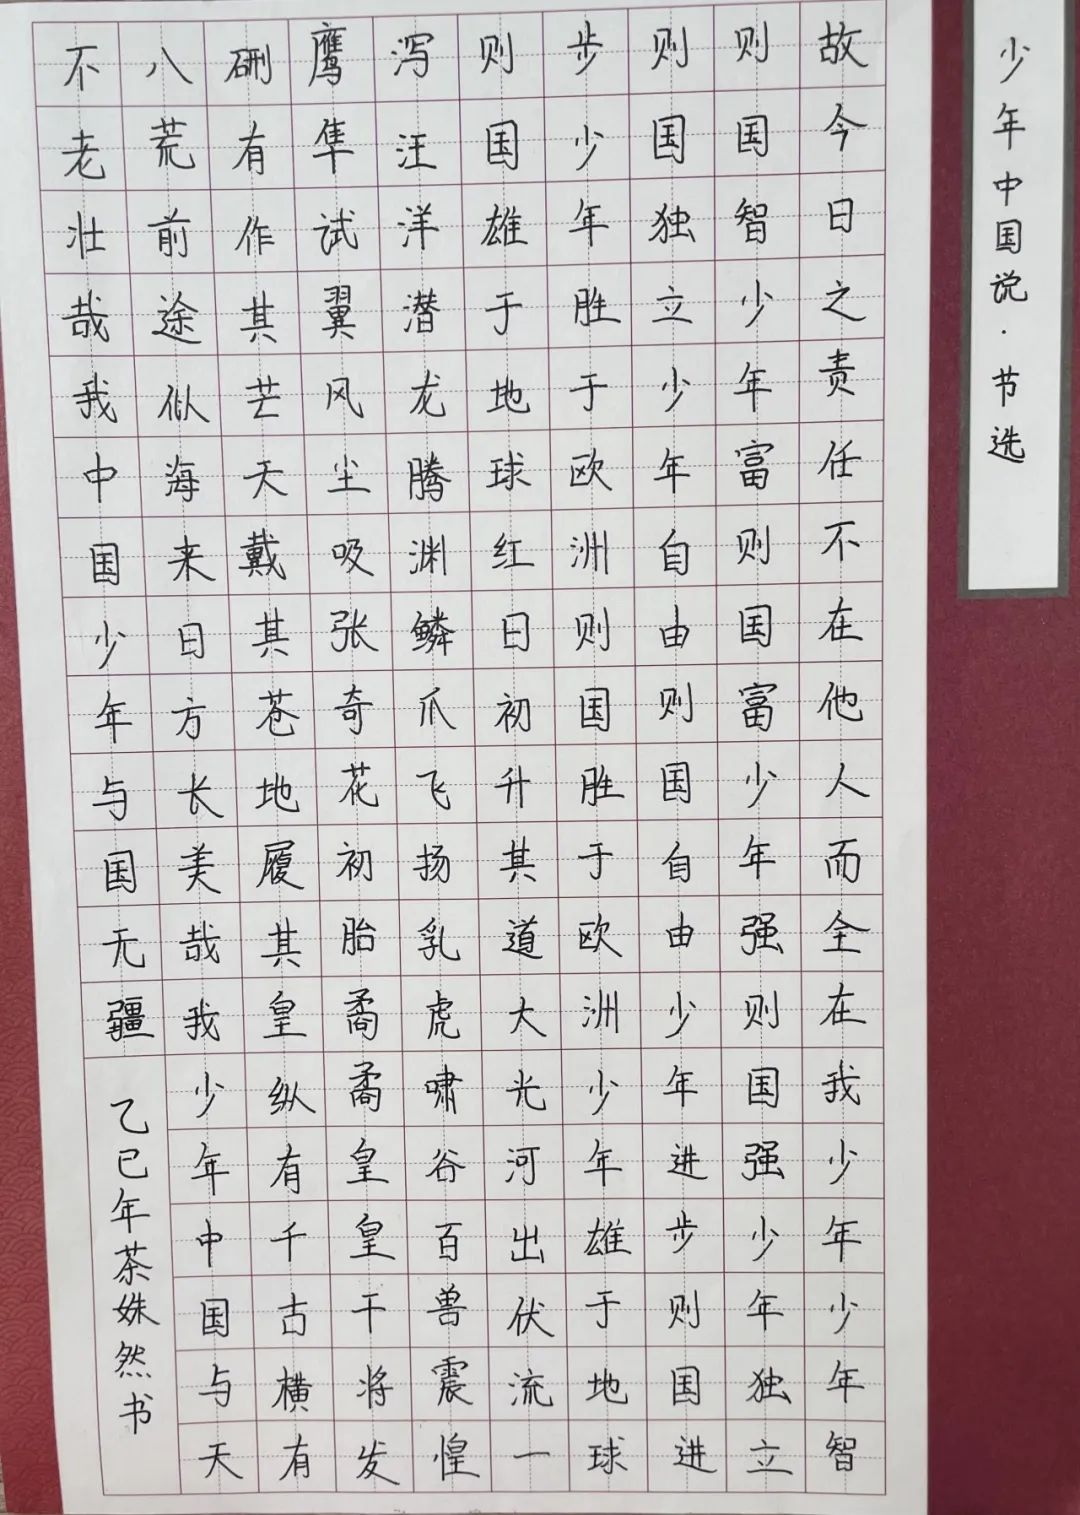 少年中国说·节选
故今日之责任不在他人而全在我少年少年智
则国智少年富则国富少年强则国强少年独立
则国独立少年自由则国自由少年进步则国进
步少年胜于欧洲则国胜于欧洲少年雄于地球
则国雄于地球红日初升其道大光河出伏流一
泻汪洋潜龙腾渊鳞爪飞扬乳虎啸谷百兽震惶
鹰隼试翼风尘吸张奇花初胎矞矞皇皇干将发
硎有作其芒天戴其苍地履其皇纵有千古横有
八荒前途似海来日方长美哉我少年中国与天
不老壮哉我中国少年与国无疆
乙巳年茶姝然书